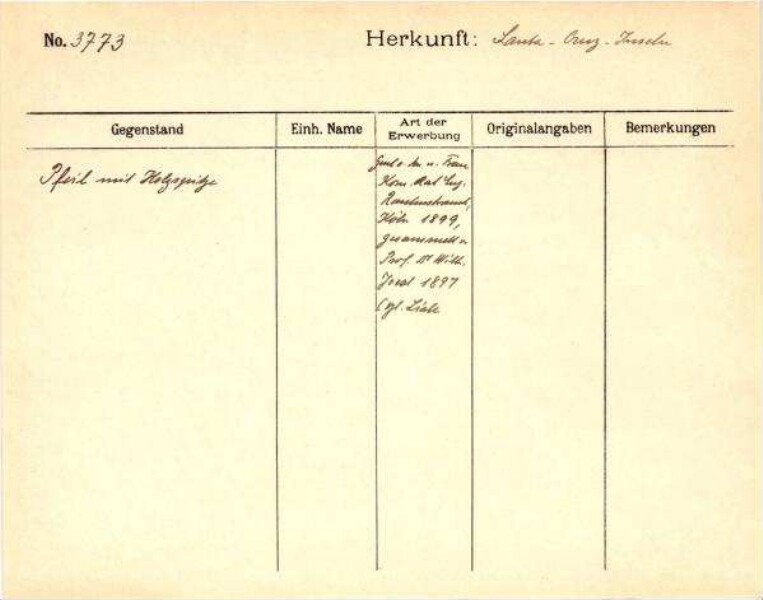 No. 3773 Herkunft: Santa-Cruz-Inseln
Gegenstand Einh. Name Art der Erwerbung Originalangaben Bemerkungen
Pfeil mit Holzspitze
u. Frau
Kom. Rat Eug.
Rautenstrauch,
Köln 1899,
gesammelt v.
Prof. Dr Wilh.
Joest 1897
(vgl. Liste